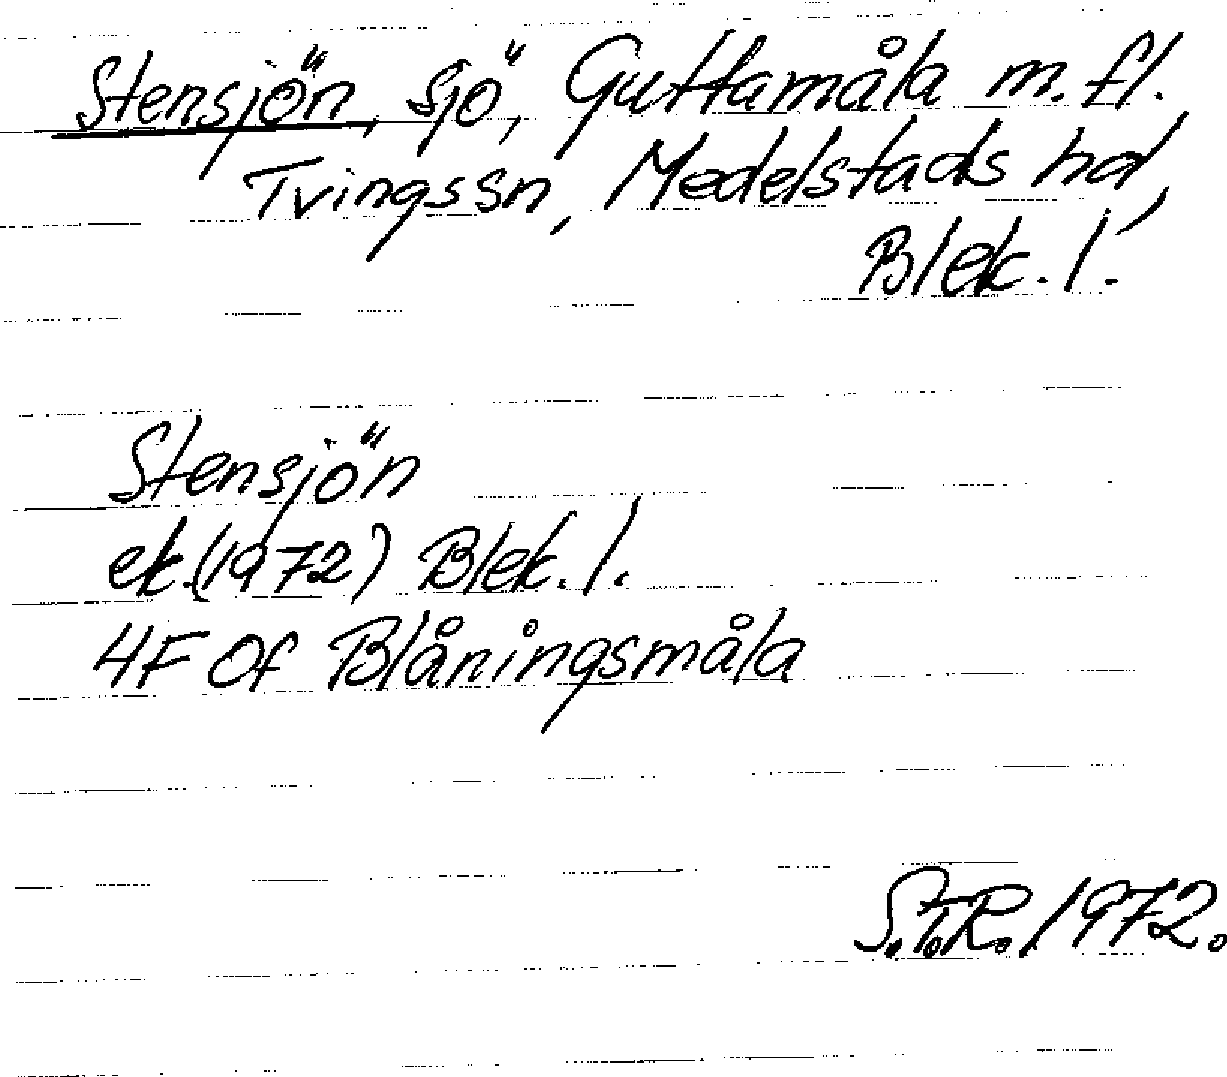 Stensjön, sjö, Guttamåla m. fl.
Tvingssn, Medelstads hd,
Blek. l.
Stensjön
ek.(1972) Blek. l.
4F 0f Blåningsmåla
S.T.R. 1972.